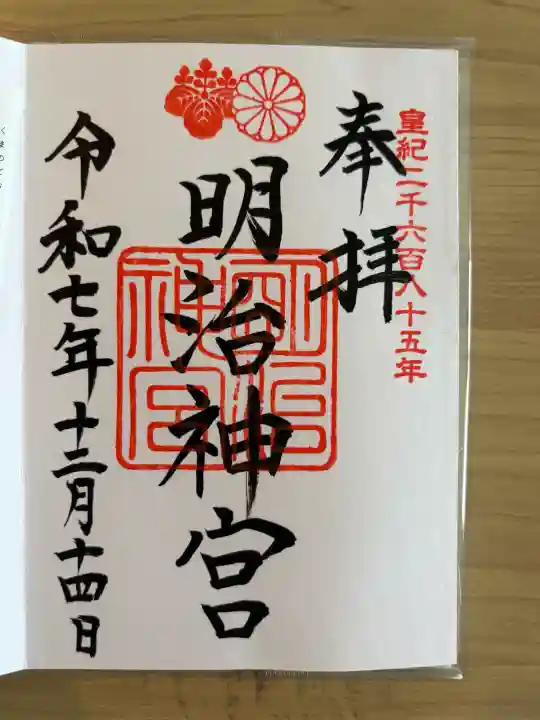 皇紀二千六百八十五年
奉拝
明治神宮
明治神宮
令和七年十二月十四日